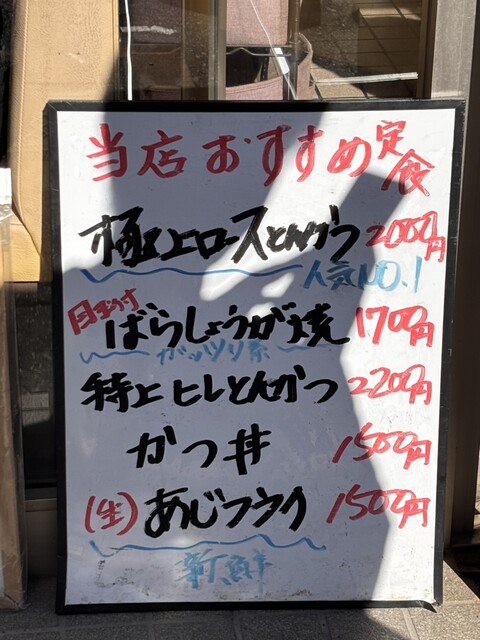 当店おすすめ定食
極上ロースとんかつ 2000円
人気NO.1
目玉付 ばらしょうが焼 1700円
ガッツリ系
特上ヒレとんかつ 2200円
かつ丼 1500円
(生)あじフライ 1500円
新鮮